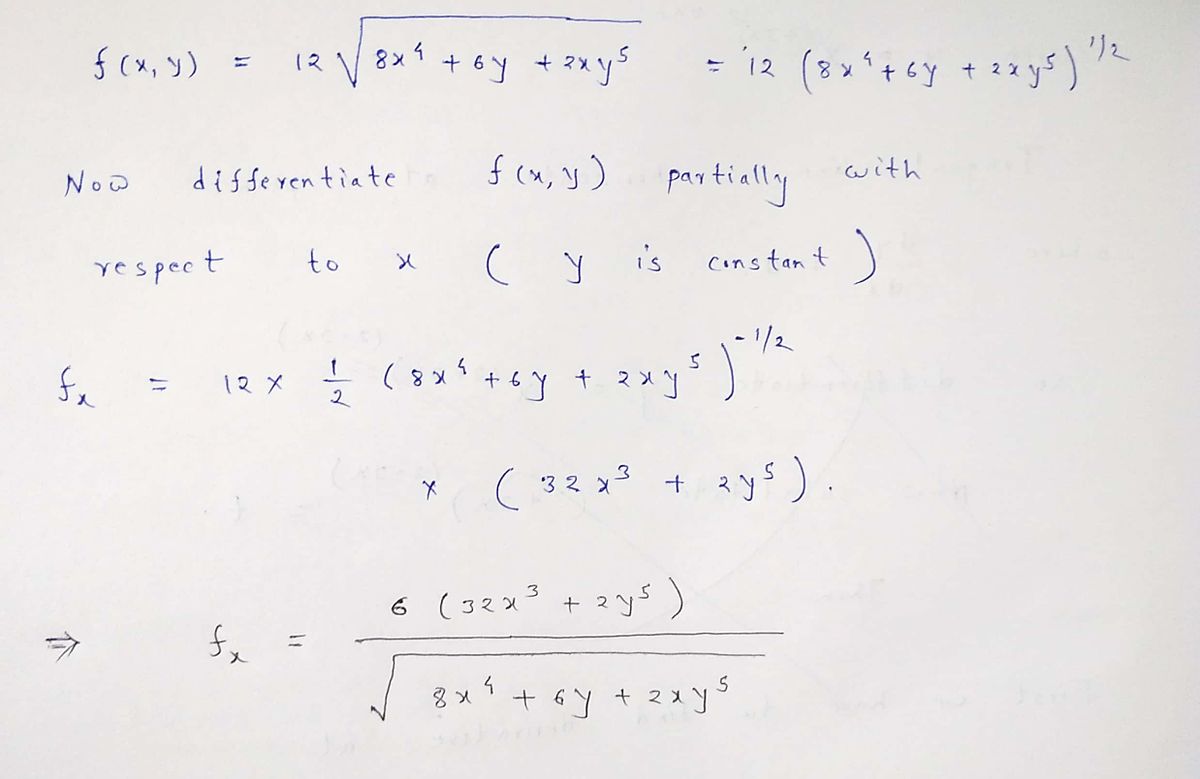 f(x, y) = 12 √(8x⁴ + 6y + 2xy⁵) = 12 (8x⁴ + 6y + 2xy⁵)^1/2
Now differentiate f(x, y) partially with
respect to x ( y is constant )
fₓ = 12 × 1/2 (8x⁴ + 6y + 2xy⁵)^-1/2
× (32x³ + 2y⁵).
⇒ fₓ = 6 (32x³ + 2y⁵) / √(8x⁴ + 6y + 2xy⁵)